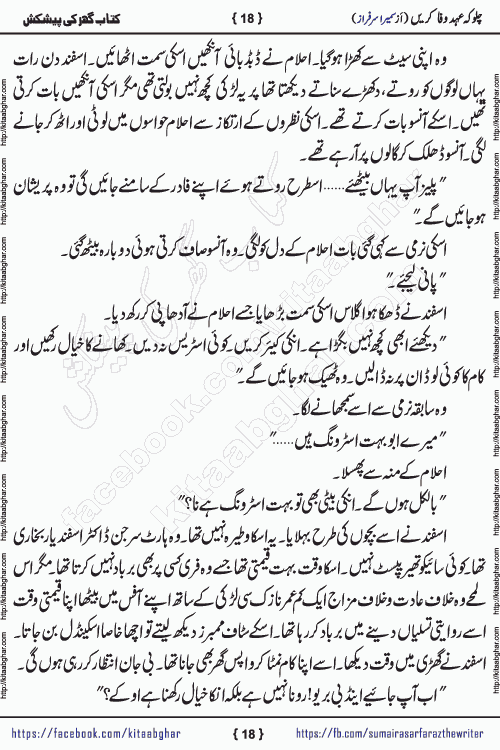 چلو کہ عہد وفا کریں (از سمیرا سرفراز) { 18 } کتاب گھر کی پیشکش
وہ اپنی سیٹ سے کھڑا ہوگیا۔ احلام نے ڈبڈبائی آنکھیں اسکی سمت اٹھائیں۔ اسفند دن رات
یہاں لوگوں کو روتے، دکھڑے سناتے دیکھتا تھا پر یہ لڑکی کچھ نہیں بولتی تھی مگر اسکی آنکھیں بات کرتی
تھیں۔ اسکے آنسو بات کرتے تھے۔ اسکی نظروں کے ارتکاز سے احلام حواسوں میں لوٹی اور اٹھ کر جانے
لگی۔ آنسو ڈھلک کر گالوں پر آرہے تھے۔
"پلیز آپ یہاں بیٹھئے......اسطرح روتے ہوئے اپنے فادر کے سامنے جائیں گی تو وہ پریشان
ہوجائیں گے۔"
اسکی نرمی سے کہی گئی بات احلام کے دل کو لگی۔ وہ آنسو صاف کرتی ہوئی دوبارہ بیٹھ گئی۔
"پانی لیجئے۔"
اسفند نے ڈھکا ہوا گلاس اسکی سمت بڑھایا جسے احلام نے آدھا پی کر رکھ دیا۔
"دیکھئے ابھی کچھ نہیں بگڑا ہے۔ انکی کیئر کریں۔ کوئی اسٹریس نہ دیں۔ کھانے کا خیال رکھیں اور
کام کا کوئی لوڈ ان پر نہ ڈالیں۔ وہ ٹھیک ہوجائیں گے۔"
وہ سابقہ نرمی سے اسے سمجھانے لگا۔
"میرے ابو بہت اسٹرونگ ہیں......"
احلام کے منہ سے پھسلا۔
"بالکل ہوں گے۔ انکی بیٹی بھی تو بہت اسٹرونگ ہے نا؟"
اسفند نے اسے بچوں کی طرح بہلایا۔ یہ اسکا وطیرہ نہیں تھا۔ وہ ہارٹ سرجن ڈاکٹر اسفندیار بخاری
تھا۔ کوئی سائیکوتھیریپسٹ نہیں۔ اسکا وقت بہت قیمتی تھا جسے وہ فری کسی پر بھی برباد نہیں کرتا تھا۔ مگر اس
لمحے وہ خلاف عادت و خلاف مزاج ایک کم عمر نازک سی لڑکی کے ساتھ اپنے آفس میں بیٹھا اپنا قیمتی وقت
اسے روایتی تسلیاں دینے میں برباد کررہا تھا۔ اسکے سٹاف ممبرز دیکھ لیتے تو اچھا خاصا اسکینڈل بن جاتا۔
اسفند نے گھڑی میں وقت دیکھا۔ اسے اپنا کام نمٹا کر واپس گھر بھی جانا تھا۔ بی جان انتظار کررہی ہوں گی۔
"اب آپ جائیے اینڈ بی بریو! رونا نہیں ہے بلکہ انکا خیال رکھنا ہے اوکے؟"
https://facebook.com/kitaabghar { 18 } https://fb.com/sumairasarfarazthewriter
http://kitaabghar.com
کتاب گھر کی پیشکش
kitaabghar.com
facebook.com/kitaabghar